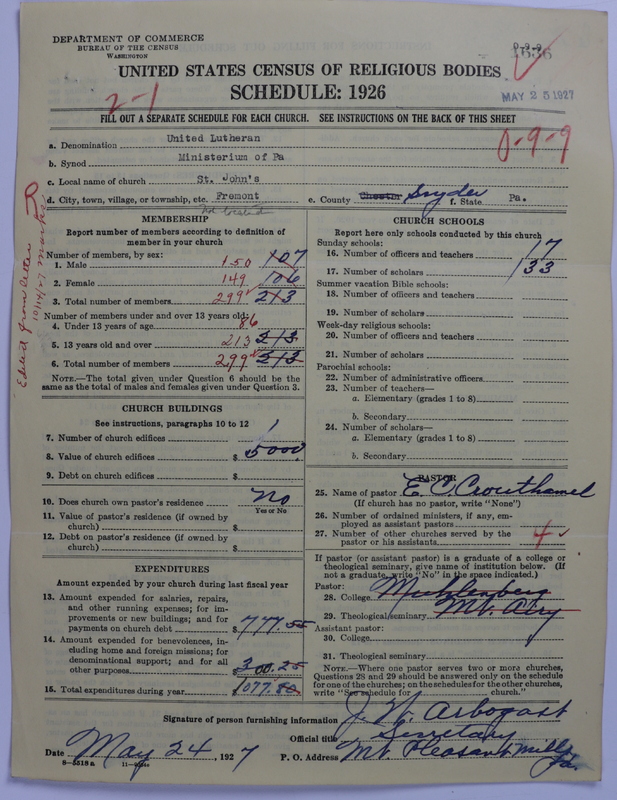 DEPARTMENT OF COMMERCE
BUREAU OF THE CENSUS
WASHINGTON
UNITED STATES CENSUS OF RELIGIOUS BODIES
SCHEDULE: 1926
MAY 25 1927
2-1
FILL OUT A SEPARATE SCHEDULE FOR EACH CHURCH. SEE INSTRUCTIONS ON THE BACK OF THIS SHEET
0-9-9
a. Denomination United Lutheran
b. Synod Ministerium of Pa
c. Local name of church St. John's
d. City, town, village, or township, etc. Fremont e. County Chester Snyder f. State Pa.
Not located
Edited from letter 10/14/27
MEMBERSHIP
Report number of members according to definition of
member in your church
Number of members, by sex:
1. Male 150 107
2. Female 149 106
3. Total number of members 299 213
Number of members under and over 13 years old:
4. Under 13 years of age 86
5. 13 years old and over 213 213
6. Total number of members 299 213
NOTE.—The total given under Question 6 should be the
same as the total of males and females given under Question 3.
CHURCH BUILDINGS
See instructions, paragraphs 10 to 12
7. Number of church edifices 1
8. Value of church edifices $ 5000
9. Debt on church edifices $
10. Does church own pastor's residence No
Yes or No
11. Value of pastor's residence (if owned by
church) $
12. Debt on pastor's residence (if owned by
church) $
EXPENDITURES
Amount expended by your church during last fiscal year
13. Amount expended for salaries, repairs,
and other running expenses; for im-
provements or new buildings; and for
payments on church debt $ 777.55
14. Amount expended for benevolences, in-
cluding home and foreign missions; for
denominational support; and for all
other purposes $ 300.25
15. Total expenditures during year $ 1077.80
CHURCH SCHOOLS
Report here only schools conducted by this church
Sunday schools:
16. Number of officers and teachers 17
17. Number of scholars 133
Summer vacation Bible schools:
18. Number of officers and teachers
19. Number of scholars
Week-day religious schools:
20. Number of officers and teachers
21. Number of scholars
Parochial schools:
22. Number of administrative officers
23. Number of teachers—
a. Elementary (grades 1 to 8)
b. Secondary
24. Number of scholars—
a. Elementary (grades 1 to 8)
b. Secondary
PASTOR
25. Name of pastor E. C. Crouthamel
(If church has no pastor, write "None")
26. Number of ordained ministers, if any, em-
ployed as assistant pastors
27. Number of other churches served by the
pastor or his assistants 4
If pastor (or assistant pastor) is a graduate of a college or
theological seminary, give name of institution below. (If
not a graduate, write "No" in the space indicated.)
Pastor:
28. College Muhlenberg
29. Theological seminary Mt. Airy
Assistant pastor:
30. College
31. Theological seminary
NOTE.—Where one pastor serves two or more churches,
Questions 28 and 29 should be answered only on the schedule
for one of the churches; on the schedules for the other churches,
write "See schedule for church."
Signature of person furnishing information J. N. Arbogast
Official title Secretary
Date May 24, 1927 P. O. Address Mt. Pleasant Mills
Pa.